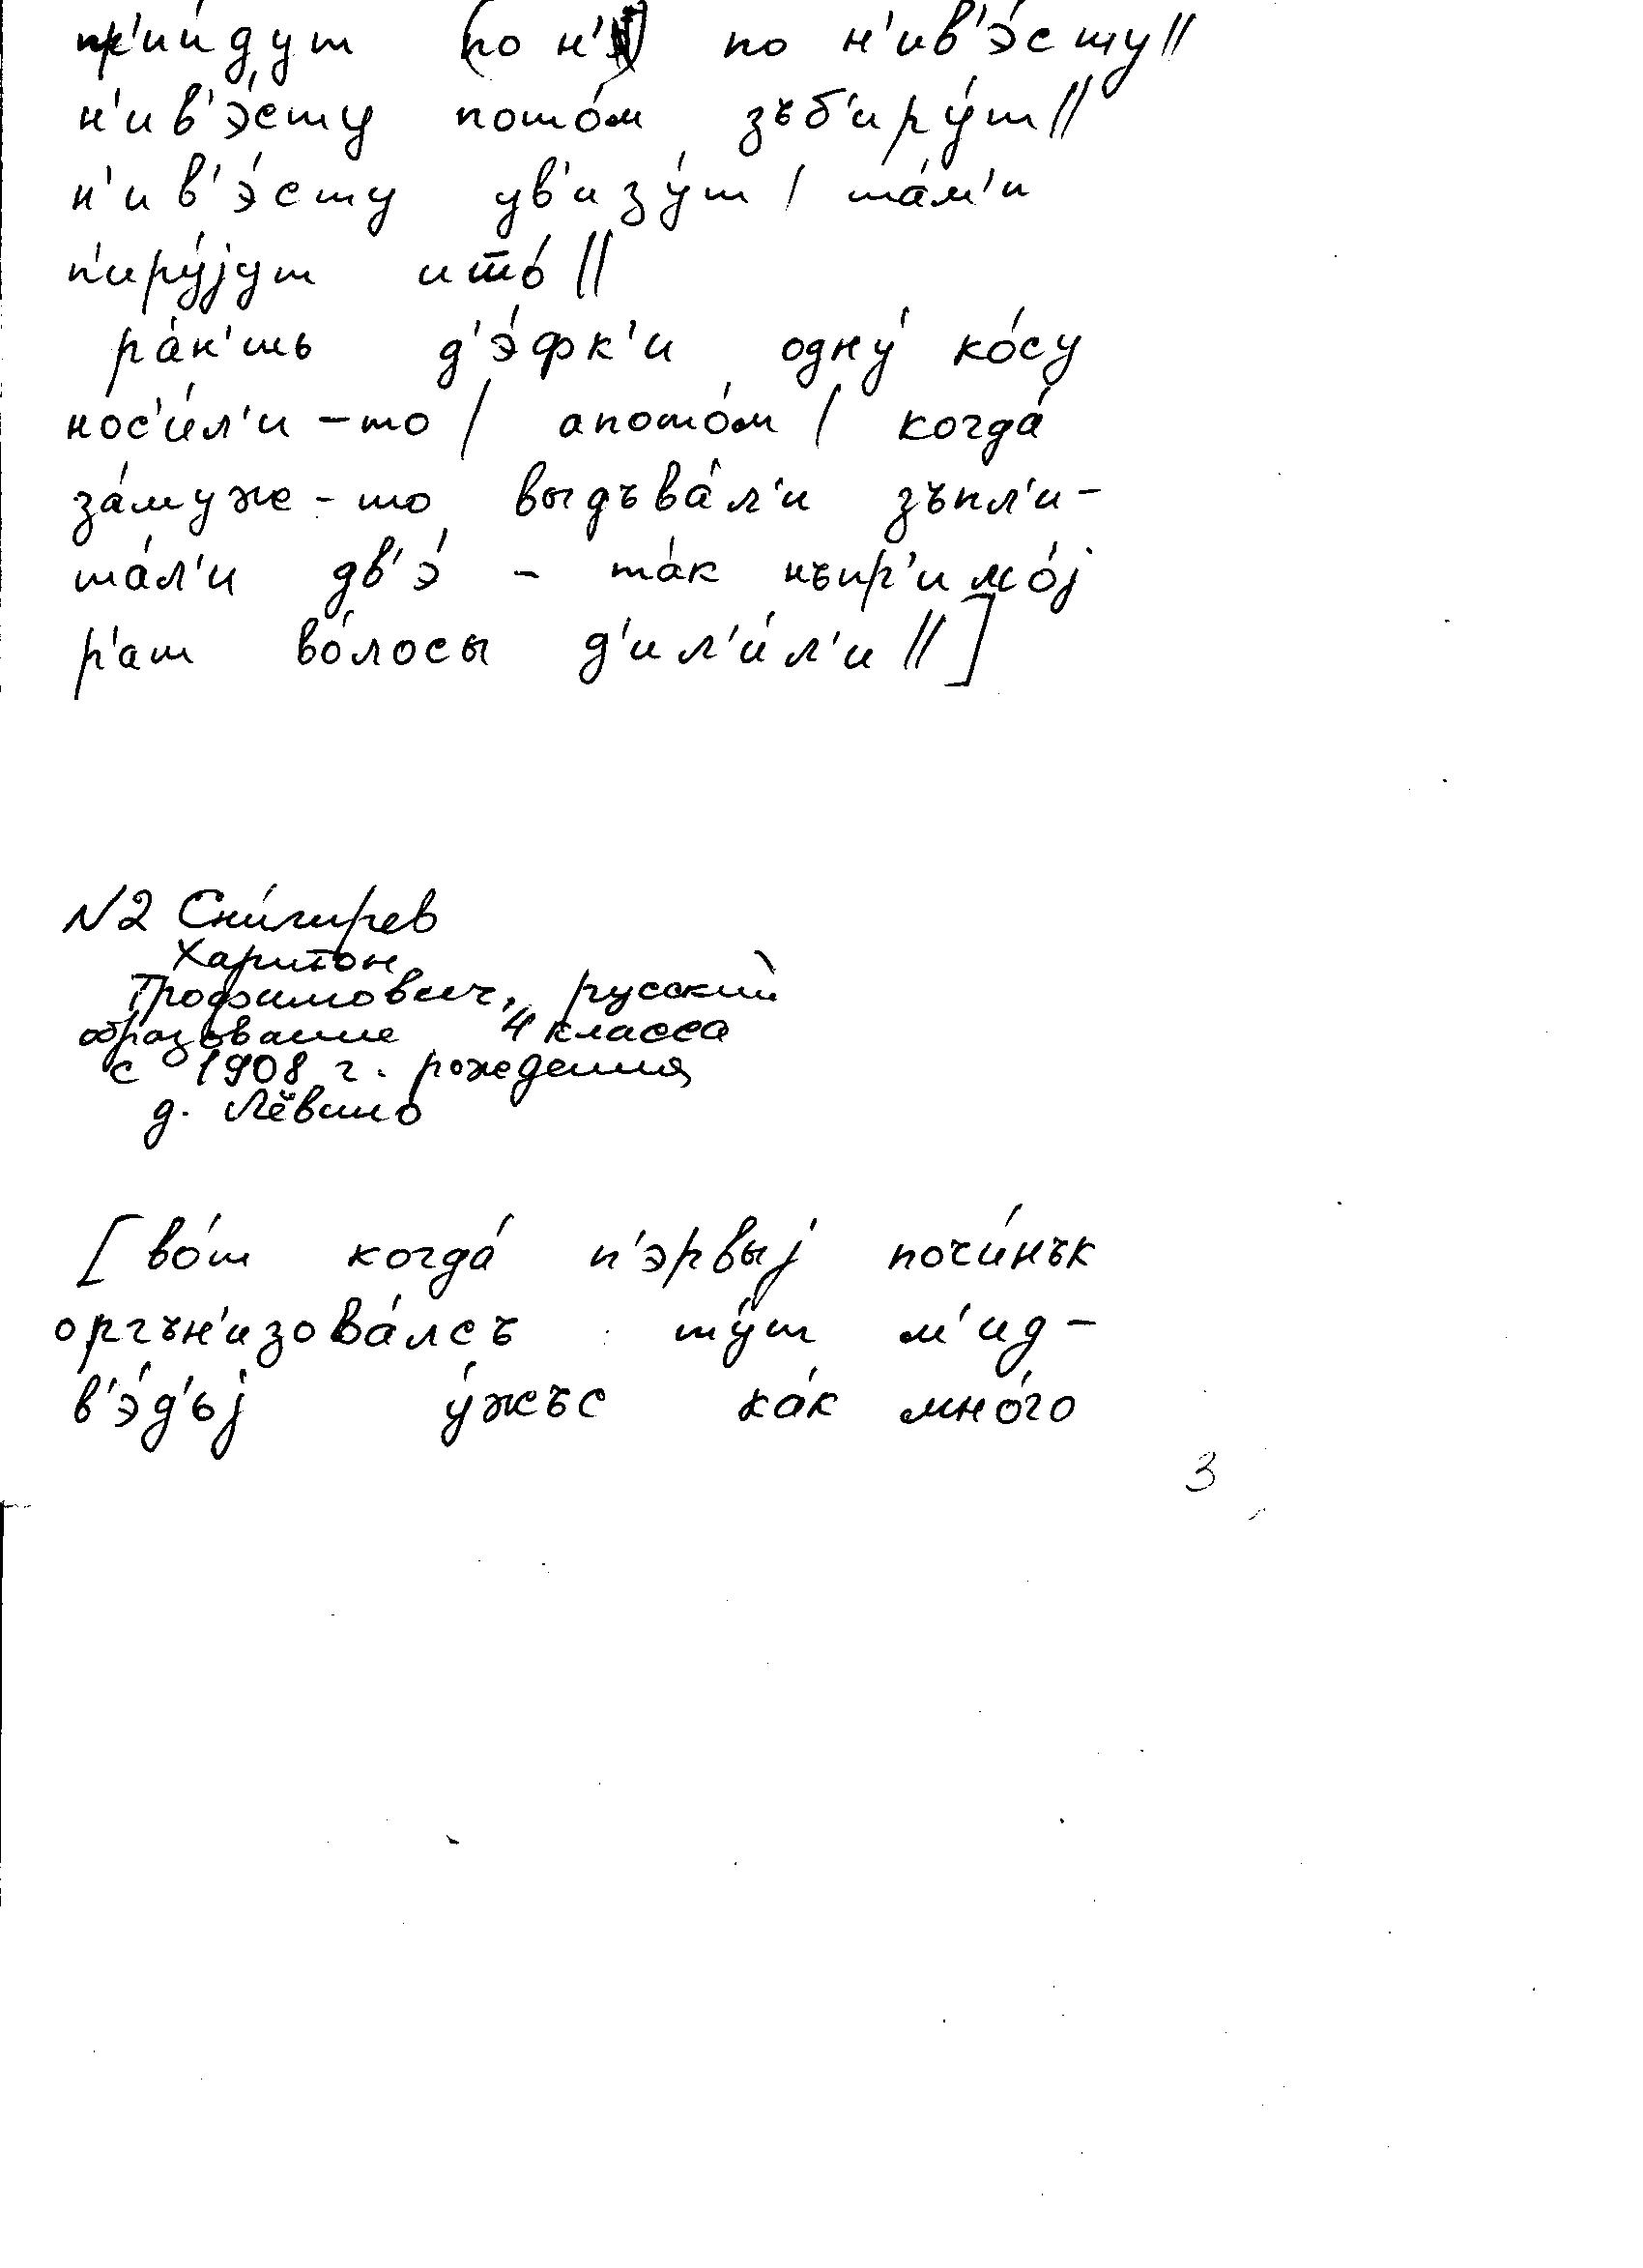 пр'ийдут (по н') по н'ив'э́сту//
н'ив'э́сту пото́м зъб'иру́т//
н'ив'э́сту ув'изу́т/ та́м'и
п'иру́jут ито́//
ра́н'шь д'э́фк'и одну́ ко́су
нос'и́л'и-то/ апото́м/ когда́
за́муже-то выдъва́л'и зъпл'и-
та́л'и дв'э́ - та́к нъпр'имо́j
р'ат во́лосы д'ил'и́л'и//]
№2 Сни́гирев
Харитон
Трофимович, русский
образование 4 класса
с 1908 г. рождения
д. Лёвино
[во́т когда́ п'эрвыj почи́нък
оргън'изова́лсъ ту́т м'ид-
в'э́д'ьj у́жъс ка́к мно́го
3